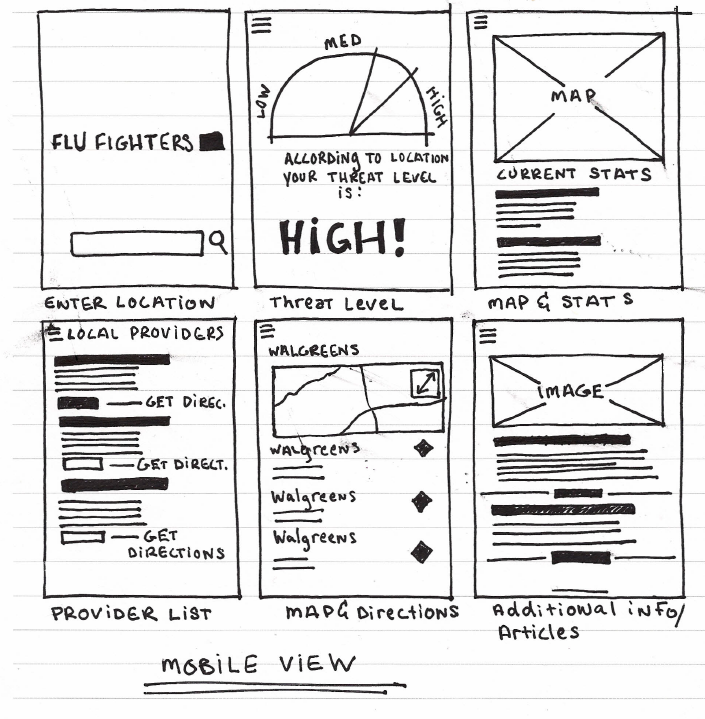 FLU FIGHTERS
ENTER LOCATION
LOW
MED
HIGH
ACCORDING TO LOCATION
YOUR THREAT LEVEL
iS:
HiGH!
Threat Level
MAP
CURRENT STATS
MAP & STATS
LOCAL PROVIDERS
GET DIREC.
GET DIRECT.
GET
DIRECTIONS
PROVIDER LIST
WALGREENS
WALgreens
Walgreens
Walgreens
MAP & Directions
iMAGE
Additional iNFO/
Articles
MOBILE VIEW